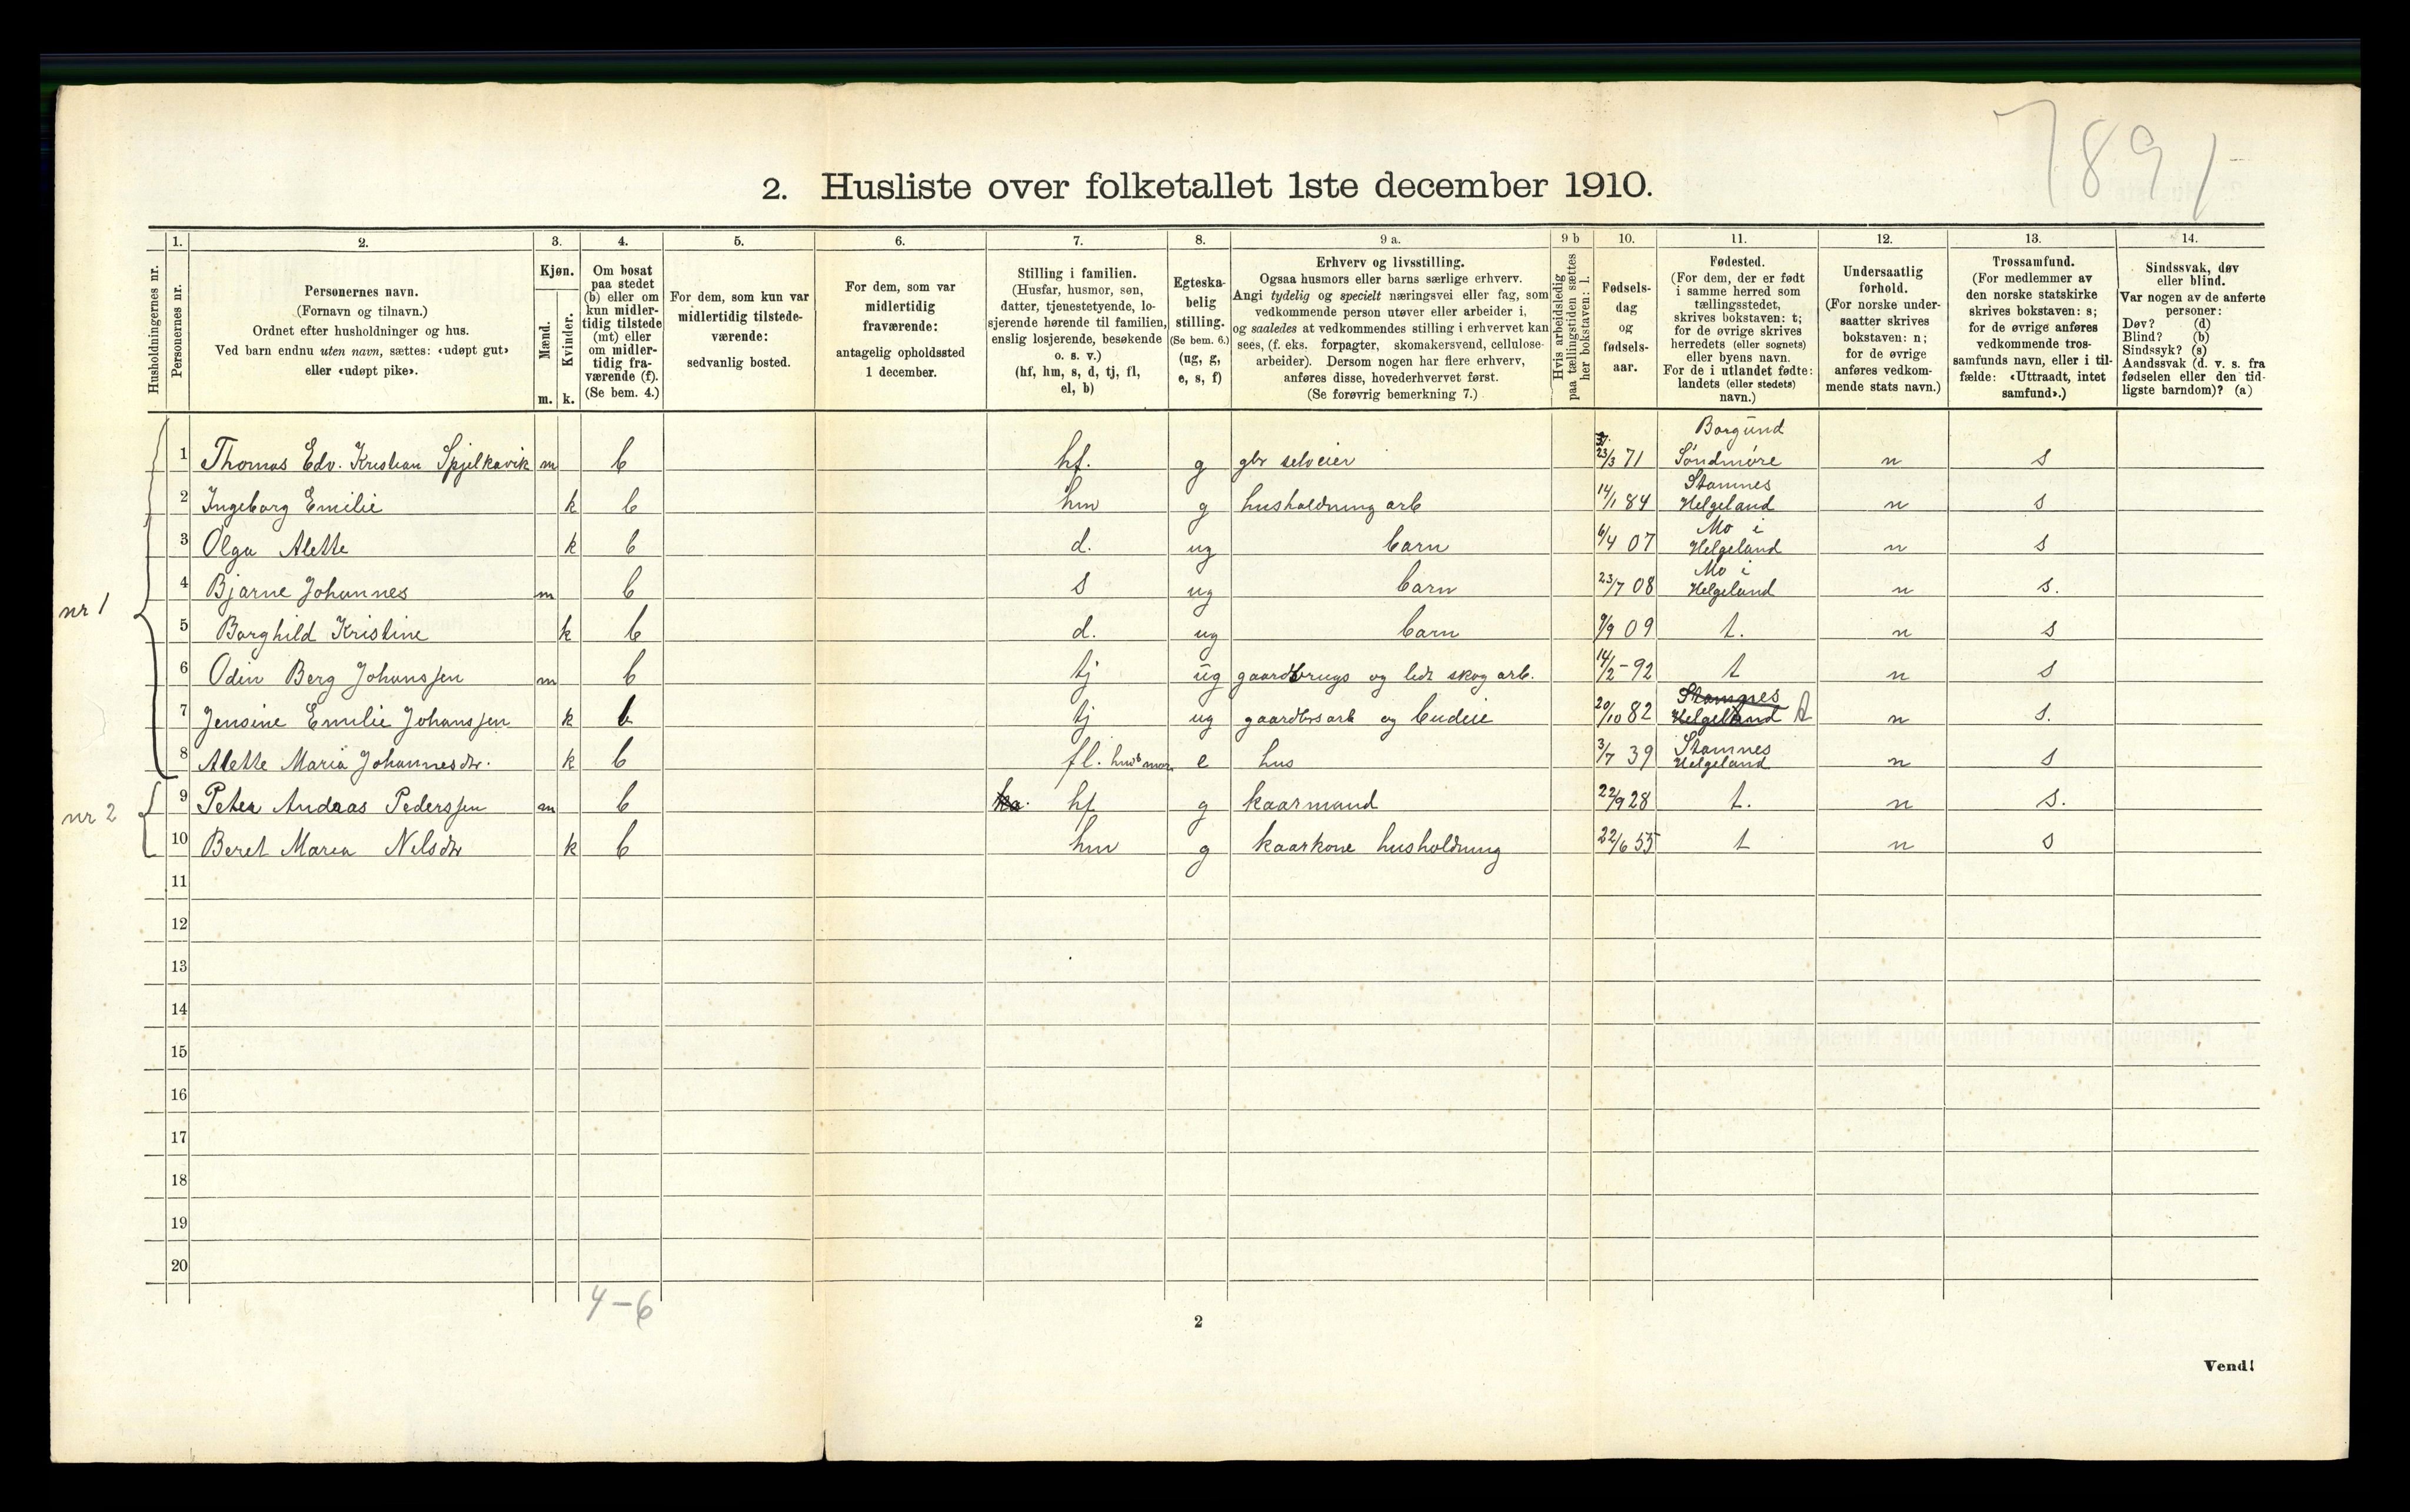 7891
2. Husliste over folketallet 1ste december 1910.
Husholdningernes nr.
1.
Personernes nr.
2.
Personernes navn.
(Fornavn og tilnavn.)
Ordnet efter husholdninger og hus.
Ved barn endnu uten navn, sættes: «udøpt gut»
eller «udøpt pike».
3.
Kjøn.
Mænd.
Kvinder.
m. k.
4.
Om bosat
paa stedet
(b) eller om
kun midler-
tidig tilstede
(mt) eller
om midler-
tidig fra-
værende (f).
(Se bem. 4.)
5.
For dem, som kun var
midlertidig tilstede-
værende:
sedvanlig bosted.
6.
For dem, som var
midlertidig
fraværende:
antagelig opholdssted
1 december.
7.
Stilling i familien.
(Husfar, husmor, søn,
datter, tjenestetyende, lo-
sjerende hørende til familien,
enslig losjerende, besøkende
o. s. v.)
(hf, hm, s, d, tj, fl,
el, b)
8.
Egteska-
belig
stilling.
(Se bem. 6.)
(ug, g,
e, s, f)
9 a.
Erhverv og livsstilling.
Ogsaa husmors eller barns særlige erhverv.
Angi tydelig og specielt næringsvei eller fag, som
vedkommende person utøver eller arbeider i,
og saaledes at vedkommendes stilling i erhvervet kan
sees, (f. eks. forpagter, skomakersvend, cellulose-
arbeider). Dersom nogen har flere erhverv,
anføres disse, hovederhvervet først.
(Se forøvrig bemerkning 7.)
9 b
Hvis arbeidsledig
paa tællingstiden sættes
her bokstaven: l.
10.
Fødsels-
dag
og
fødsels-
aar.
11.
Fødested.
(For dem, der er født
i samme herred som
tællingsstedet,
skrives bokstaven: t;
for de øvrige skrives
herredets (eller sognets)
eller byens navn.
For de i utlandet fødte:
landets (eller stedets)
navn.)
12.
Undersaatlig
forhold.
(For norske under-
saatter skrives
bokstaven: n;
for de øvrige
anføres vedkom-
mende stats navn.)
13.
Trossamfund.
(For medlemmer av
den norske statskirke
skrives bokstaven: s;
for de øvrige anføres
vedkommende tros-
samfunds navn, eller i til-
fælde: «Uttraadt, intet
samfund».)
14.
Sindssvak, døv
eller blind.
Var nogen av de anførte
personer:
Døv? (d)
Blind? (b)
Sindssyk? (s)
Aandssvak (d. v. s. fra
fødselen eller den tid-
ligste barndom)? (a)
nr 1
1 Thomas Edv. Kristian Spjelkavik m b hf. g gbr selveier 23/3 71 Borgund Søndmøre n s
2 Ingeborg Emilie k b hm g husholdning arb 14/1 84 Stamnes Helgeland n s
3 Olga Alette k b d. ug barn 6/4 07 Mo i Helgeland n s
4 Bjarne Johannes m b s ug barn 23/7 08 Mo i Helgeland n s.
5 Borghild Kristine k b d. ug barn 9/9 09 t. n s
6 Odin Berg Johanssen m b tj ug gaardbrugs og lidt skog arb. 14/2-92 t n s
7 Jensine Emilie Johanssen k b tj ug gaardbrs arb og budeie 20/10 82 Stamnes Helgeland n s.
8 Alette Maria Johannesdtr. k b fl. husb mor e hus 3/7 39 Stamnes Helgeland n s
nr 2
9 Peter Andreas Pederssen m b hf g kaarmand 22/9 28 t. n s.
10 Beret Maria Nilsdtr k b hm g kaarkone husholdning 22/6 55 t n s
11
12
13
14
15
16
17
18
19
20
4-6
2
Vend!